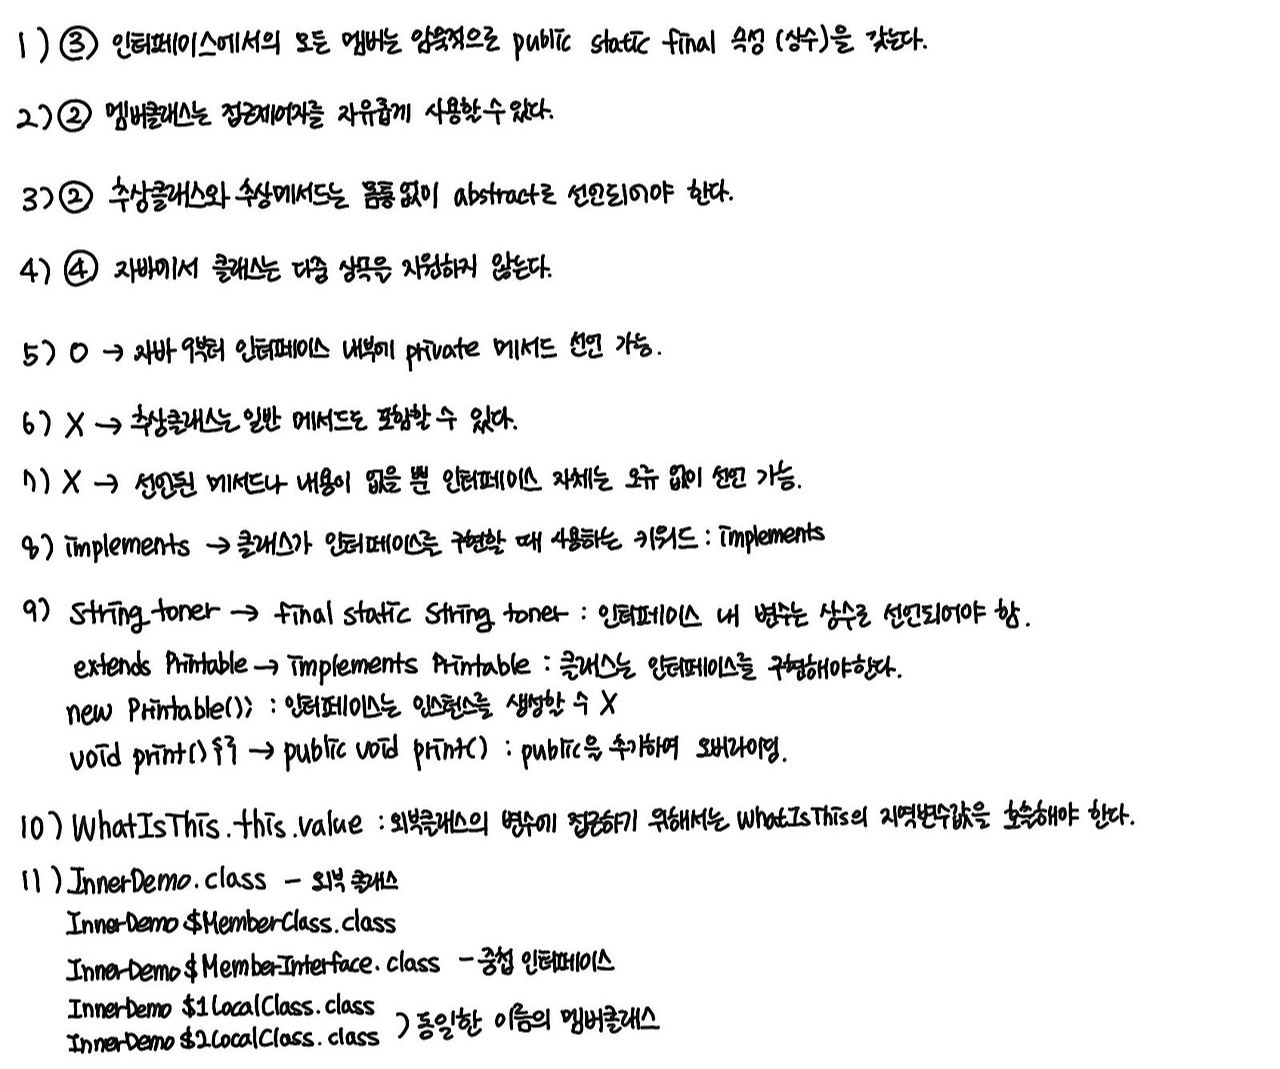 1) ③ 인터페이스에서의 모든 멤버는 암묵적으로 public static final 속성 (상수)을 갖는다.
2) ② 멤버클래스는 접근제어자를 자유롭게 사용할 수 있다.
3) ② 추상클래스와 추상메서드는 몸통 없이 abstract로 선언되어야 한다.
4) ④ 자바에서 클래스는 다중 상속을 지원하지 않는다.
5) O → 자바 9부터 인터페이스 내부에 private 메서드 선언 가능.
6) X → 추상클래스는 일반 메서드도 포함할 수 있다.
7) X → 선언된 메서드나 내용이 없을 뿐 인터페이스 자체는 오류 없이 선언 가능.
8) implements → 클래스가 인터페이스를 구현할 때 사용하는 키워드 : implements
9) String toner → final static String toner : 인터페이스 내 변수는 상수로 선언되어야 함.
extends Printable → implements Printable : 클래스는 인터페이스를 구현해야한다.
new Printable(); : 인터페이스는 인스턴스를 생성할 수 X
void print() {} → public void print() : public을 추가하여 오버라이딩.
10) WhatIsThis.this.value : 외부클래스의 변수에 접근하기 위해서는 WhatIsThis의 지역변수값을 호출해야 한다.
11) InnerDemo.class - 외부 클래스
InnerDemo$MemberClass.class
InnerDemo$MemberInterface.class - 중첩 인터페이스
InnerDemo $1LocalClass.class
InnerDemo $2LocalClass.class ) 동일한 이름의 멤버클래스